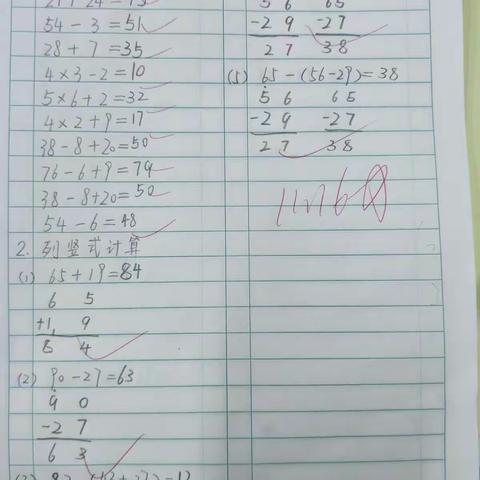 54 - 3 = 51
28 + 7 = 35
4 × 3 - 2 = 10
5 × 6 + 2 = 32
4 × 2 + 9 = 17
38 - 8 + 20 = 50
76 - 6 + 9 = 79
38 - 8 + 20 = 50
54 - 6 = 48
2. 列竖式计算
(1) 65 + 19 = 84
6 5
+1 9
8 4
(2) 90 - 27 = 63
9 0
-2 7
6 3
5 6 65
-2 9 -27
2 7 38
(5) 65 - (56 - 29) = 38
5 6 6 5
-2 9 -27
2 7 38